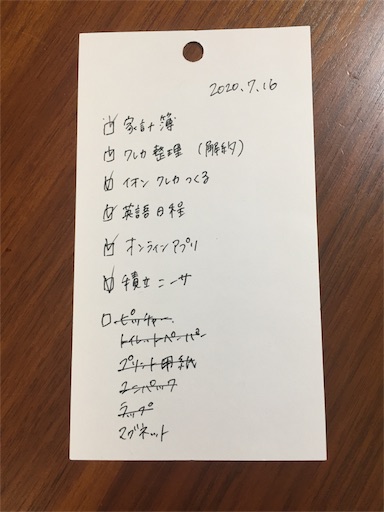 2020.7.16
☑ 家計簿
☑ クレカ整理 (解約)
☑ イオンクレカつくる
☑ 英語日程
☑ オンラインアプリ
☑ 積立ニーサ
☐ ピッチャー
トイレットペーパー
プリント用紙
ユニパック
ラップ
マグネット